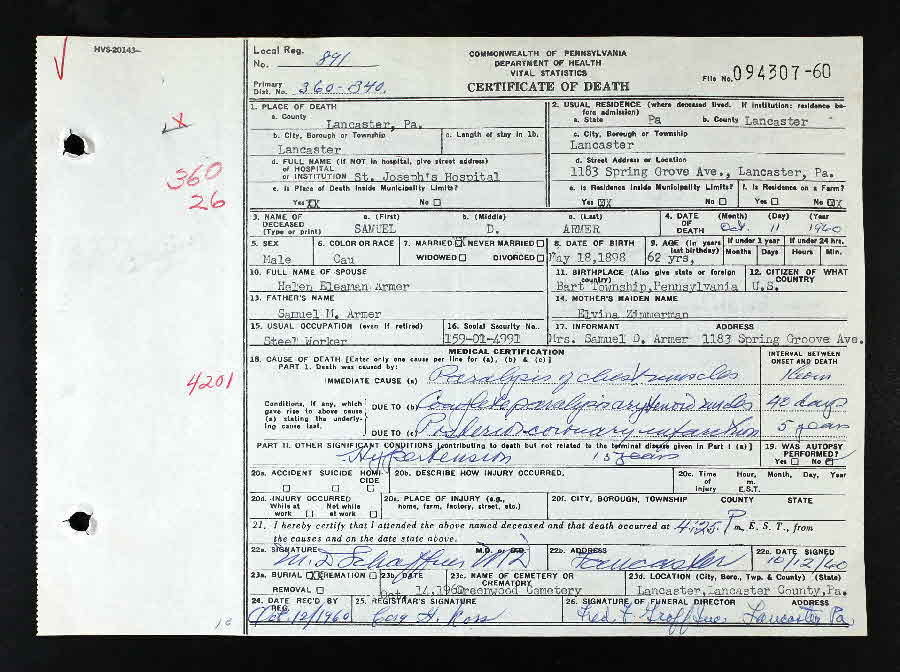 HVS-20143—
Local Reg. No. 891
COMMONWEALTH OF PENNSYLVANIA
DEPARTMENT OF HEALTH
VITAL STATISTICS
CERTIFICATE OF DEATH
Primary Dist. No. 360-840.
File No. 094307-60
X
360
26
4201
1. PLACE OF DEATH
a. County
Lancaster, Pa.
b. City, Borough or Township
Lancaster
c. Length of stay in 1b.
d. FULL NAME (If NOT in hospital, give street address)
of HOSPITAL
or INSTITUTION St. Joseph's Hospital
e. Is Place of Death Inside Municipality Limits?
Yes XX No
2. USUAL RESIDENCE (where deceased lived. If institution: residence before admission)
a. State Pa b. County Lancaster
c. City, Borough or Township
Lancaster
d. Street Address or Location
1183 Spring Grove Ave., Lancaster, Pa.
e. Is Residence Inside Municipality Limits? f. Is Residence on a Farm?
Yes XX No Yes No XX
3. NAME OF DECEASED (Type or print)
a. (First) b. (Middle) c. (Last)
SAMUEL D. ARMER
4. DATE OF DEATH (Month) (Day) (Year)
Oct. 11 1960
5. SEX
Male
6. COLOR OR RACE
Cau
7. MARRIED X NEVER MARRIED
WIDOWED DIVORCED
8. DATE OF BIRTH
May 18,1898
9. AGE (In years last birthday)
62 yrs,
If under 1 year If under 24 hrs.
Months Days Hours Min.
10. FULL NAME OF SPOUSE
Helen Eleaman Armer
11. BIRTHPLACE (Also give state or foreign country)
Bart Township,Pennsylvania
12. CITIZEN OF WHAT COUNTRY
U.S.
13. FATHER'S NAME
Samuel M. Armer
14. MOTHER'S MAIDEN NAME
Elvina Zimmerman
15. USUAL OCCUPATION (even if retired)
Steel Worker
16. Social Security No.
159-01-4991
17. INFORMANT ADDRESS
Mrs. Samuel D. Armer 1183 Spring Groove Ave.
MEDICAL CERTIFICATION
18. CAUSE OF DEATH [Enter only one cause per line for (a), (b) & (c)]
INTERVAL BETWEEN ONSET AND DEATH
PART I. Death was caused by:
IMMEDIATE CAUSE (a) Paralysis of chest muscles
Conditions, if any, which gave rise to above cause (a) stating the underlying cause last.
DUE TO (b) Complete paralysis arytenoid 48 days
DUE TO (c) Posterior coronary infarction 5 years
PART II. OTHER SIGNIFICANT CONDITIONS [contributing to death but not related to the terminal disease given in Part I (a)]
Hypertension 15 years
19. WAS AUTOPSY PERFORMED?
Yes No
20a. ACCIDENT SUICIDE HOMICIDE
20b. DESCRIBE HOW INJURY OCCURRED.
20c. Time of Injury Hour, Month, Day, Year
m. E.S.T.
20d. INJURY OCCURRED
While at work Not while at work
20e. PLACE OF INJURY (e.g., home, farm, factory, street, etc.)
20f. CITY, BOROUGH, TOWNSHIP COUNTY STATE
21. I hereby certify that I attended the above named deceased and that death occurred at 4:25 P m, E. S. T., from
the causes and on the date state above.
22a. SIGNATURE M.D. or D.O.
22b. ADDRESS
Lancaster
22c. DATE SIGNED
10/12/60
23a. BURIAL XX CREMATION
REMOVAL
23b. DATE
Oct. 14,1960
23c. NAME OF CEMETERY or CREMATORY
Greenwood Cemetery
23d. LOCATION (City, Boro., Twp. & County) (State)
Lancaster,Lancaster County,Pa.
24. DATE REC'D BY REG.
Oct. 12/1960
25. REGISTRAR'S SIGNATURE
Ross
26. SIGNATURE OF FUNERAL DIRECTOR ADDRESS
Fred F. Groff Inc. Lancaster Pa